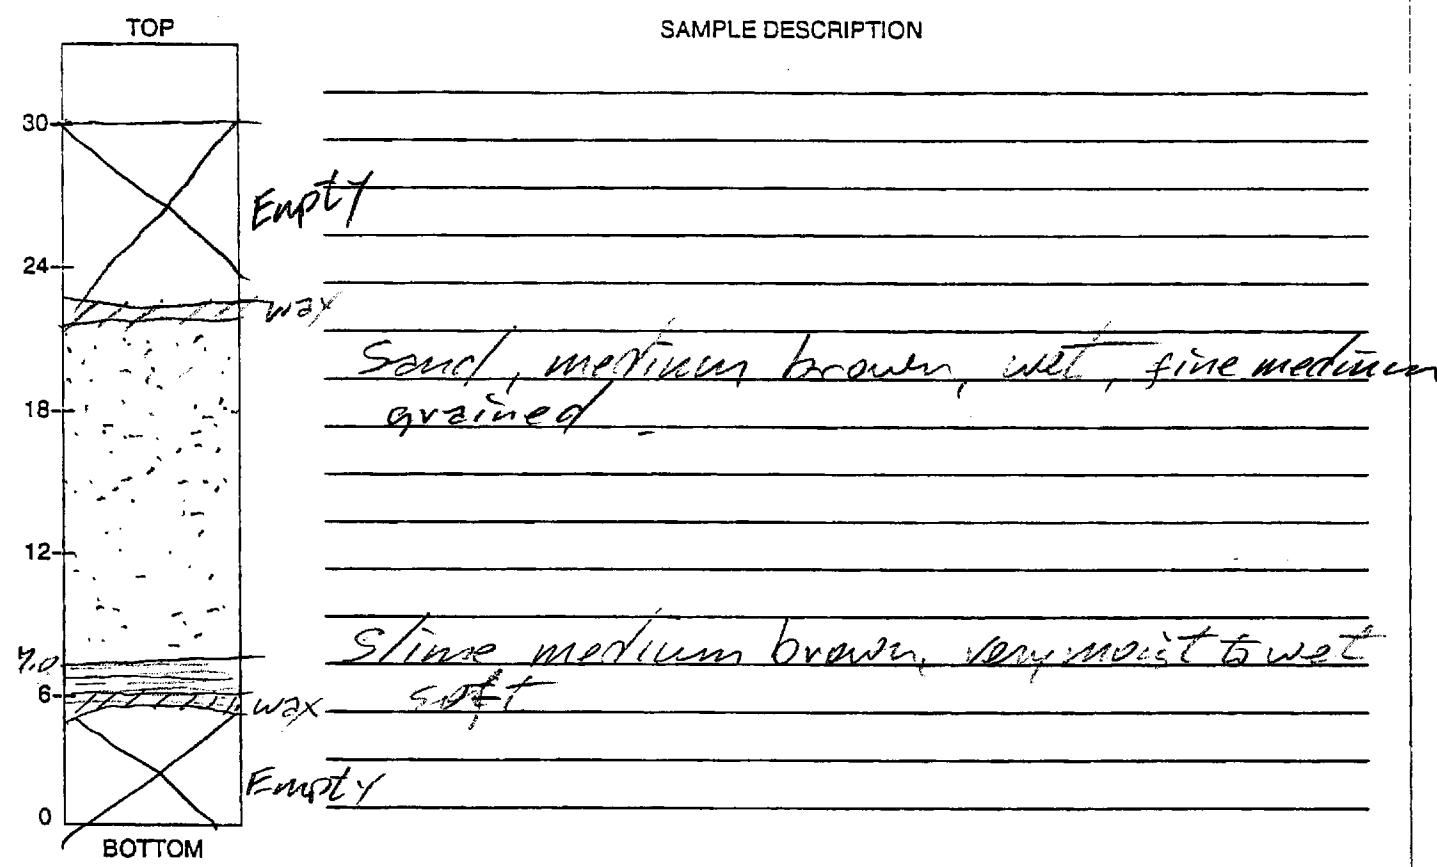 TOP
SAMPLE DESCRIPTION
30
Empty
24
wax
Sand, medium brown, wet, fine medium
18
grained.
12
Slime medium brown, very moist to wet
7.0
6
wax
soft
Empty
0
BOTTOM